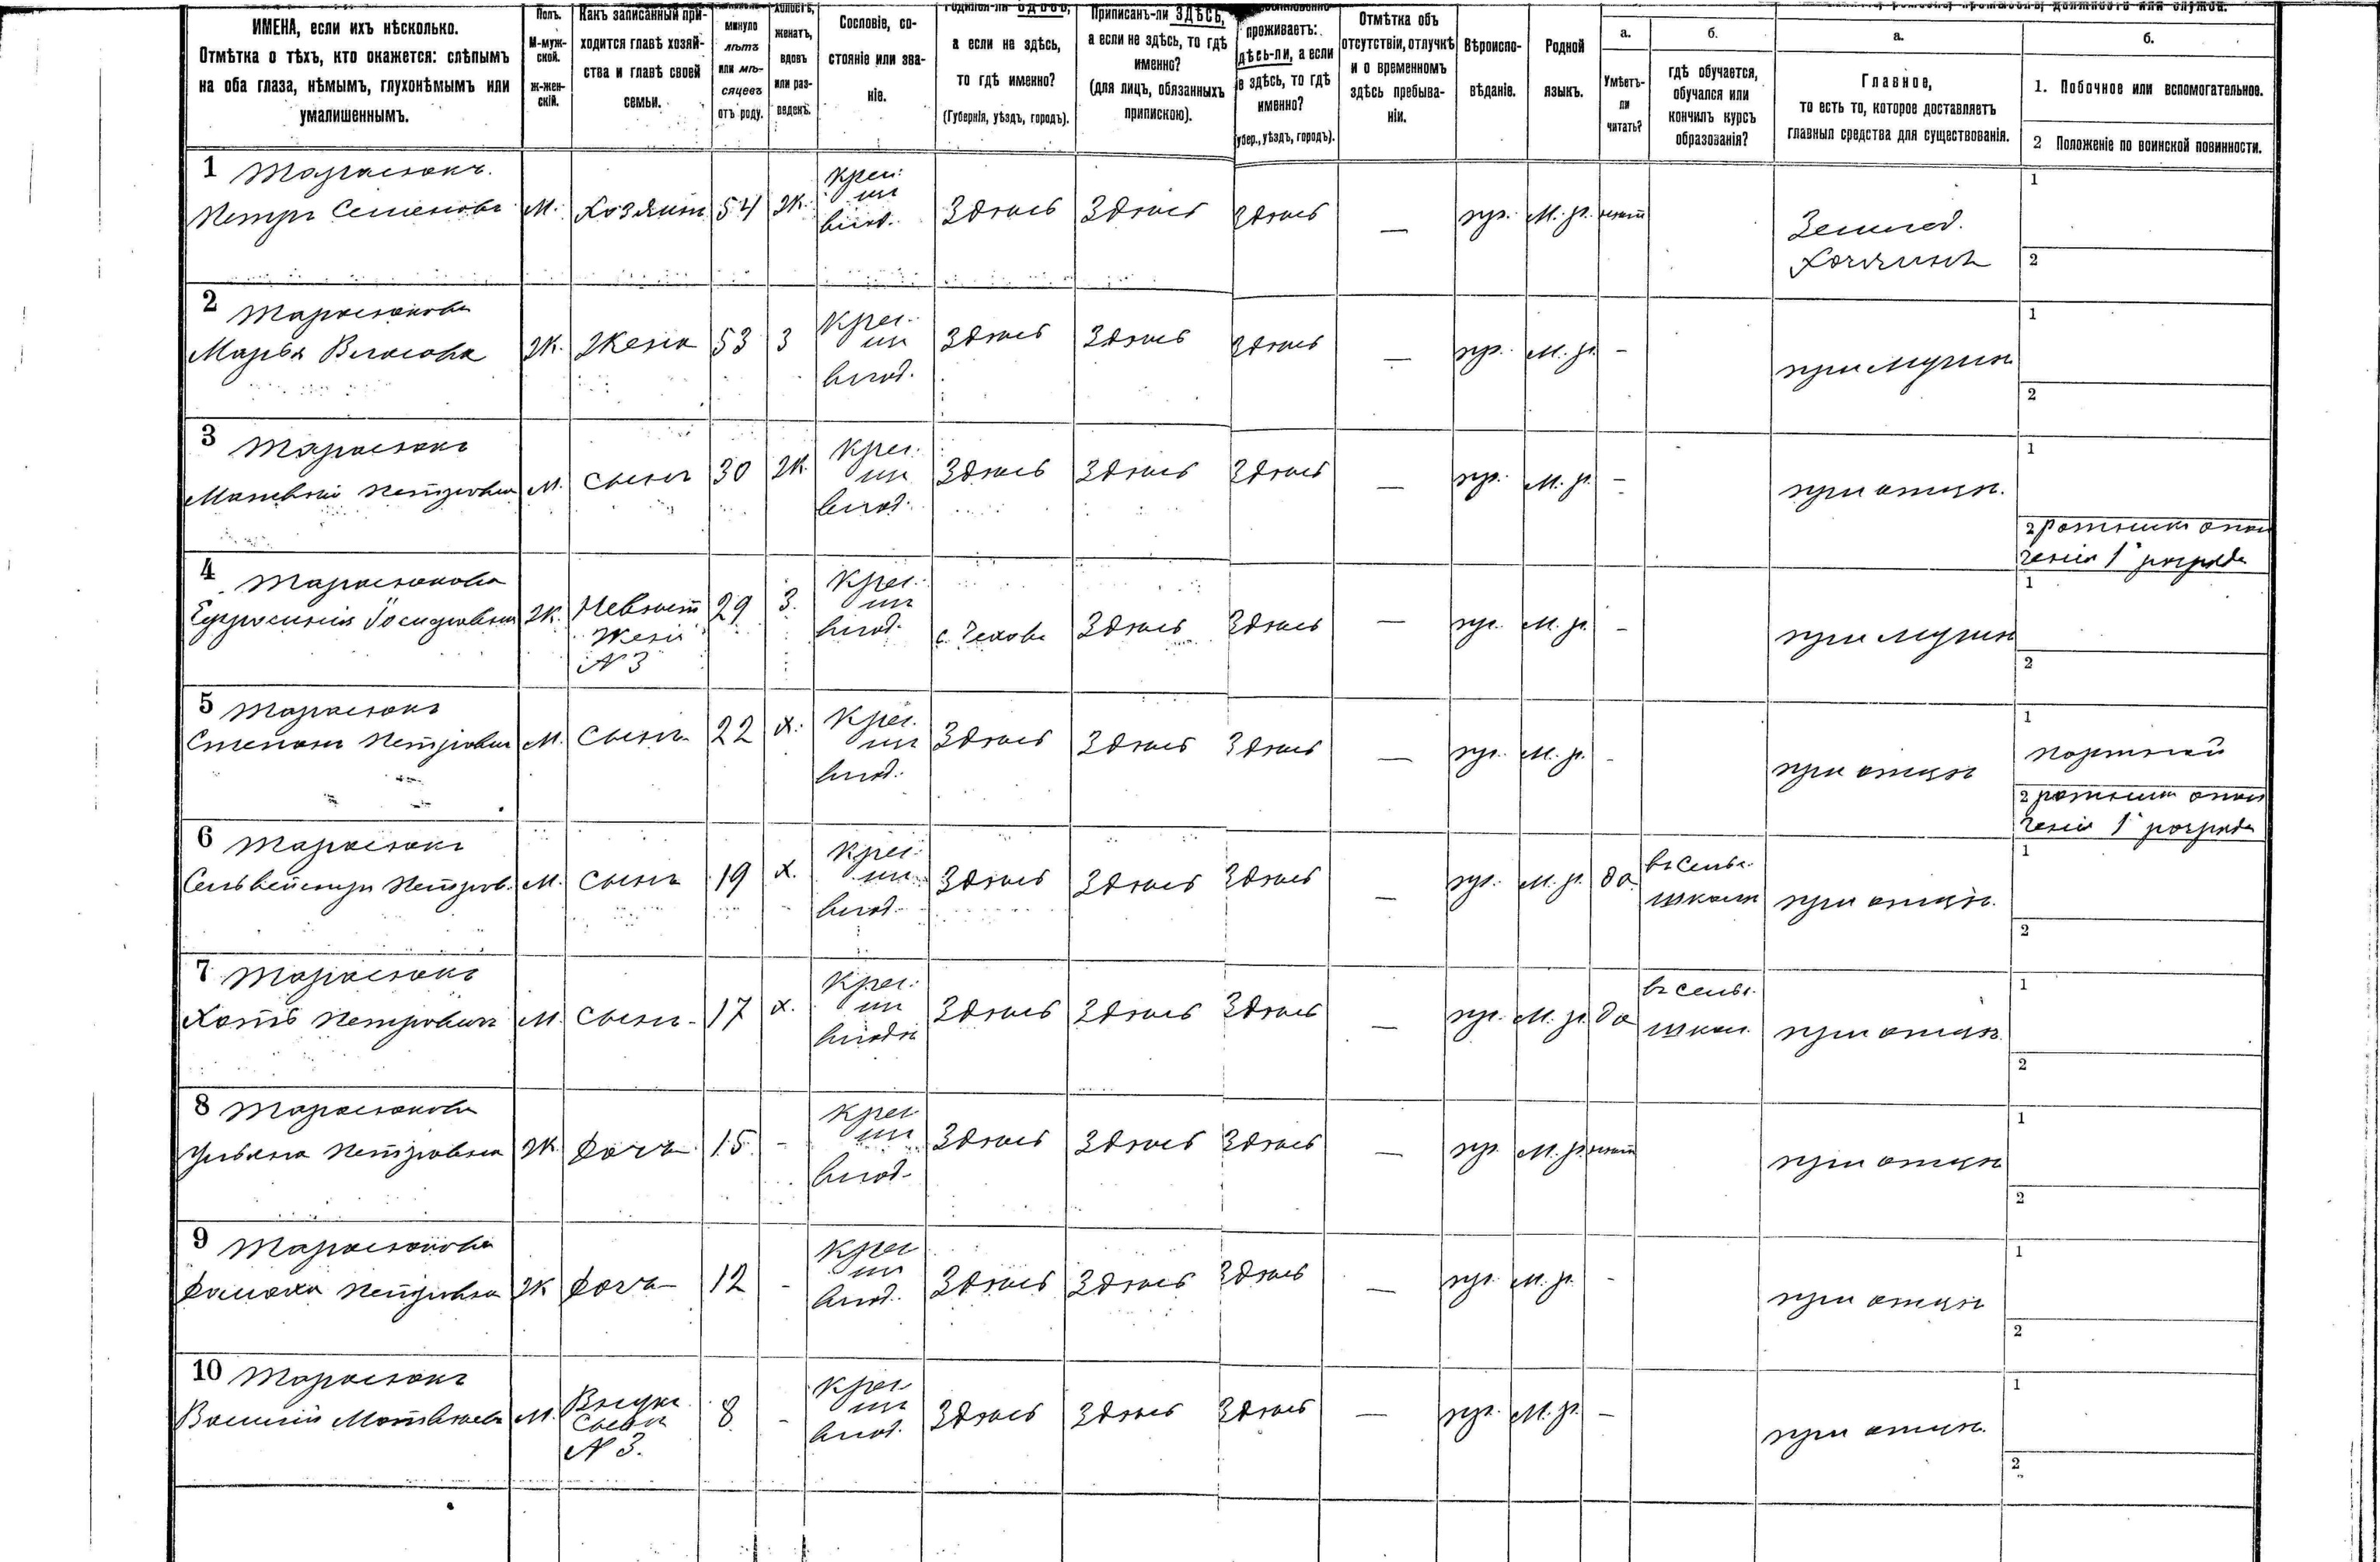 ИМЕНА, если ихъ нѣсколько.
Отмѣтка о тѣхъ, кто окажется: слѣпымъ
на оба глаза, нѣмымъ, глухонѣмымъ или
умалишеннымъ.
Полъ.
М-муж-
ской.
ж-жен-
скій.
Какъ записанный при-
ходится главѣ хозяй-
ства и главѣ своей
семьи.
минуло
лѣтъ
или мѣ-
сяцевъ
отъ роду.
женатъ,
вдовъ
или раз-
веденъ.
Сословіе, со-
стояніе или зва-
ніе.
а если не здѣсь,
то гдѣ именно?
(Губернія, уѣздъ, городъ).
Приписанъ-ли ЗДѢСЬ,
а если не здѣсь, то гдѣ
именно?
(для лицъ, обязанныхъ
припискою).
проживаетъ:
здѣсь-ли, а если
не здѣсь, то гдѣ
именно?
(Губер., уѣздъ, городъ).
Отмѣтка объ
отсутствіи, отлучкѣ
и о временномъ
здѣсь пребыва-
ніи.
Вѣроиспо-
вѣданіе.
Родной
языкъ.
а.
Умѣетъ-
ли
читать?
б.
гдѣ обучается,
обучался или
кончилъ курсъ
образованія?
а.
Главное,
то есть то, которое доставляетъ
главныя средства для существованія.
б.
1. Побочное или вспомогательное.
2 Положеніе по воинской повинности.
1 Тарасюкъ
Петръ Семеновъ М. Хозяинъ 54 Ж. Крес. из влад. Здѣсь Здѣсь Здѣсь — пр. М. р. нѣтъ Землед. Хозяинъ 1
2
2 Тарасюкова
Марья Власова Ж. Жена 53 З Крес. из влад. Здѣсь Здѣсь Здѣсь — пр. М. р. - при мужѣ 1
2
3 Тарасюкъ
Матвѣй Петровъ М. Сынъ 30 Ж. Крес. из влад. Здѣсь Здѣсь Здѣсь — пр. М. р. - при отцѣ. 1
2 ратникъ опол
ченія 1 разряда
4 Тарасюкова
Ефросинія М Ж. Невѣст Жена N 3 29 З. Крес. из влад. с. Здѣсь Здѣсь — пр. М. р. - при мужѣ 1
2
5 Тарасюкъ
Степанъ Петровъ М. Сынъ 22 Х. Крес. из влад. Здѣсь Здѣсь Здѣсь — пр. М. р. - при отцѣ 1 портной
2 ратникъ опол
ченія 1 разряда
6 Тарасюкъ
Сельвестръ Петров. М. Сынъ 19 Х. Крес. из влад. Здѣсь Здѣсь Здѣсь — пр. М. р. да въ сельс. школѣ при отцѣ. 1
2
7 Тарасюкъ
Петровичъ М. Сынъ 17 Х. Крес. из Здѣсь Здѣсь Здѣсь — пр. М. р. да въ сельс. школ. при отцѣ. 1
2
8 Тарасюкова
Ульяна Петровна Ж. Дочь 15 - Крес из влад. Здѣсь Здѣсь Здѣсь — пр. М. р. нѣтъ при отцѣ 1
2
9 Тарасюкова
Домаха Петровна Ж Дочь 12 - Крес из влад. Здѣсь Здѣсь Здѣсь — пр. М. р. - при отцѣ 1
2
10 Тарасюкъ
Василій Матвѣевъ М. Внукъ Сынъ N 3. 8 - Крес из влад. Здѣсь Здѣсь Здѣсь — пр. М. р. - при отцѣ. 1
2